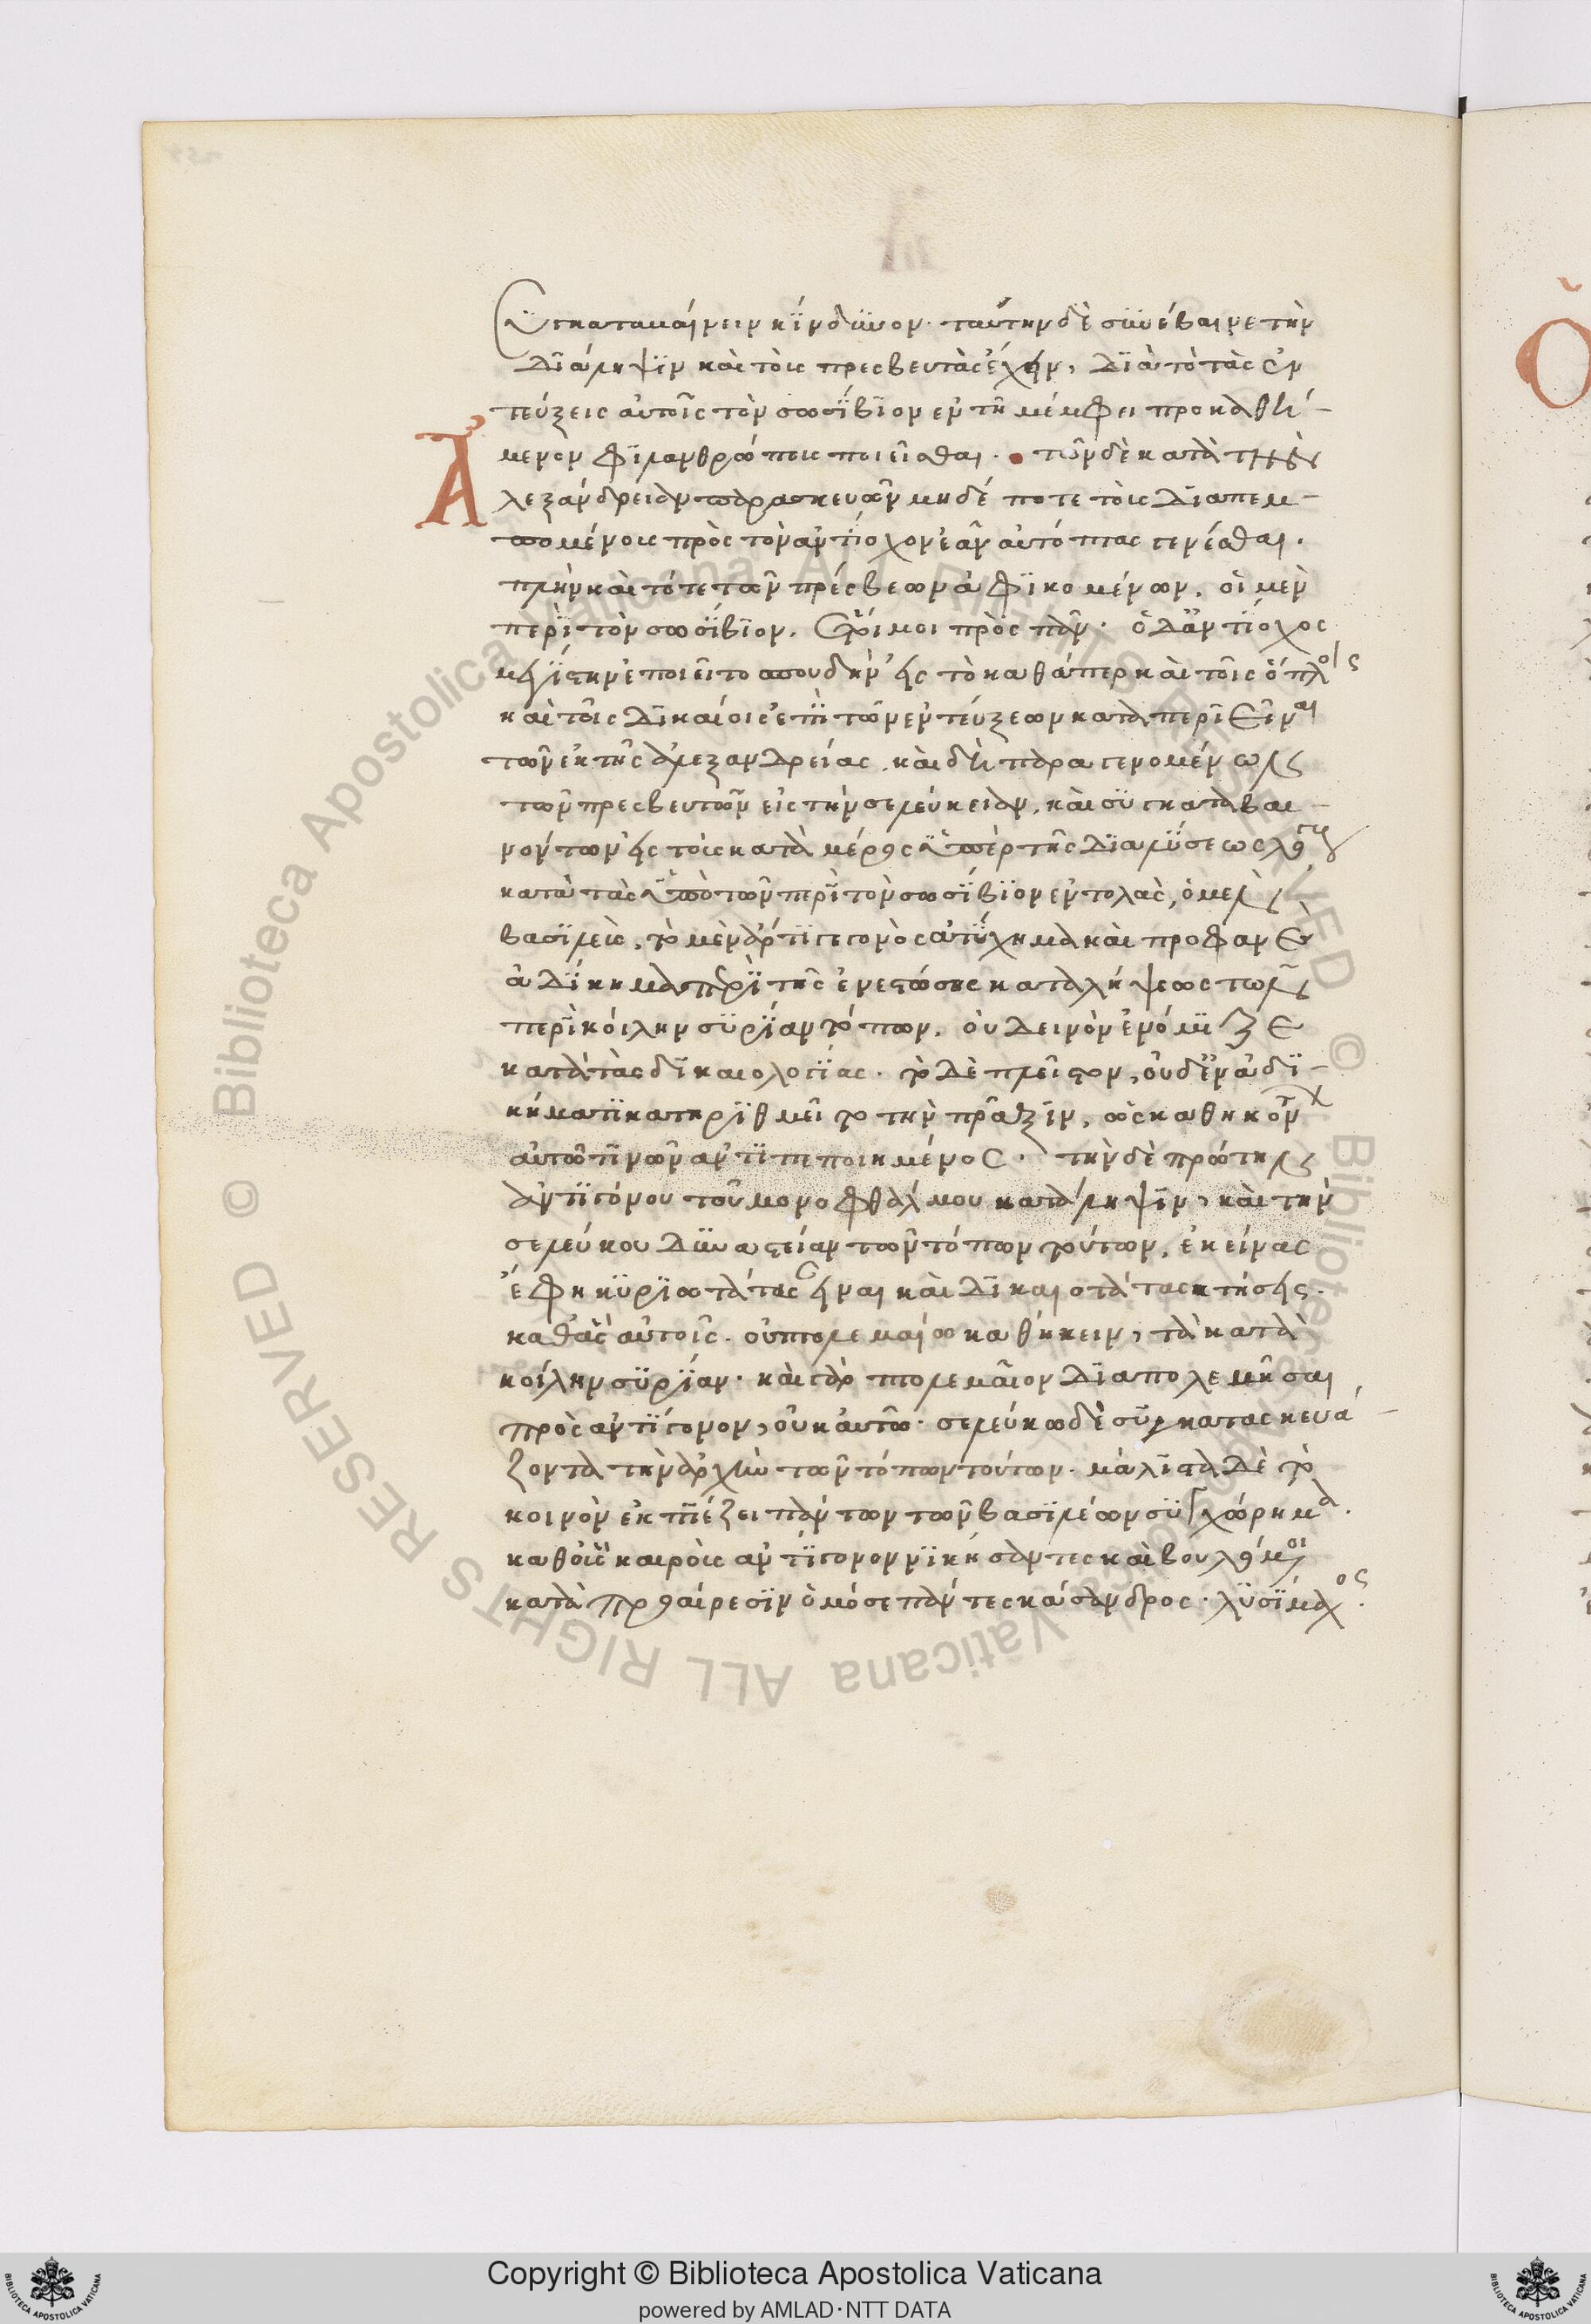 συγκαταβαίνειν κίνδυνον· ταύτην δὲ συνέβαινε τὴν
διάληψιν καὶ τοὺς πρεσβευτὰς ἔχειν, διὰ τὸ τὰς ἐν
τεύξεις αὐτοῖς τὸν σωσίβιον ἐν τῇ μέμφει προκαθή-
μενον φιλανθρώπους ποιεῖσθαι. τῶν δὲ κατὰ τὴν ἀ
Ἀ
λεξάνδρειαν παρασκευῶν μηδέποτε τοὺς διαπεμ-
πομένους πρὸς τὸν ἀντίοχον ἐᾶν αὐτόπτας γενέσθαι.
πλὴν καὶ τότε τῶν πρέσβεων ἀφικομένων, οἱ μὲν
περὶ τὸν σωσίβιον, ἕτοιμοι πρὸς πᾶν· ὁ δ' ἀντίοχος
μεγίστην ἐποιεῖτο σπουδὴν εἰς τὸ καθάπερ καὶ τοῖς ὅπλοις
καὶ τοῖς δικαίοις ἐπὶ τῶν ἐντεύξεων καταπεριεῖναι
τῶν ἐκ τῆς ἀλεξανδρείας. καὶ δὴ παραγενομένων
τῶν πρεσβευτῶν εἰς τὴν σελεύκειαν, καὶ συγκαταβαι-
νόντων εἰς τοὺς κατὰ μέρος ὑπὲρ τῆς διαλύσεως λόγους
κατὰ τὰς ὑπὸ τῶν περὶ τὸν σωσίβιον ἐντολὰς, ὁ μὲν
βασιλεὺς, τὸ μὲν ἄρτι γεγονὸς ἀτύχημα καὶ προφανὲς
ἀδίκημα περὶ τῆς ἐνεστώσης καταλήψεως τῶν
περὶ κοίλην συρίαν τόπων, οὐ δεινὸν ἐνόμιζε
κατὰ τὰς δικαιολογίας. τὸ δὲ πλεῖστον, οὐδ' ἐν ἀδι-
κήματι κατηριθμεῖτο τὴν πρᾶξιν, ὡς καθηκόντων
αὐτῷ τινῶν ἀντιπεποιημένος. τὴν δὲ πρώτην
ἀντιγόνου τοῦ μονοφθάλμου κατάληψιν, καὶ τὴν
σελεύκου δυναστείαν τῶν τόπων τούτων, ἐκείνας
ἔφη κυριωτάτας εἶναι καὶ δικαιοτάτας κτήσεις.
καθ' ἃς αὐτοῖς. οὐ πτολεμαίῳ καθήκειν, τὰ κατὰ
κοίλην συρίαν· καὶ γὰρ πτολεμαῖον διαπολεμῆσαι
πρὸς ἀντίγονον, οὐκ αὐτῷ· σελεύκῳ δὲ συγκατασκευά-
ζοντα τὴν ἀρχὴν τῶν τόπων τούτων. μάλιστα δὲ τὸ
κοινὸν ἐκπιέζει πάντων τῶν βασιλέων συγχώρημα.
καθ' οὓς καιροὺς ἀντίγονον νικήσαντες καὶ βουλόμενοι
κατὰ προαίρεσιν ὁμόσε πάντες κάσανδρος· λυσίμαχος.